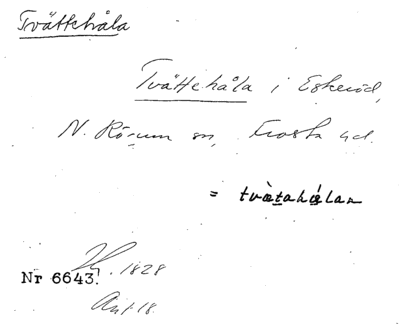 Tvättehåla
Tvättehåla i Eskeröd,
N. Rörum sn, Frosta hd.
= tvæ̀tahǽlan
1828
Nr 6643.
Ant 18.